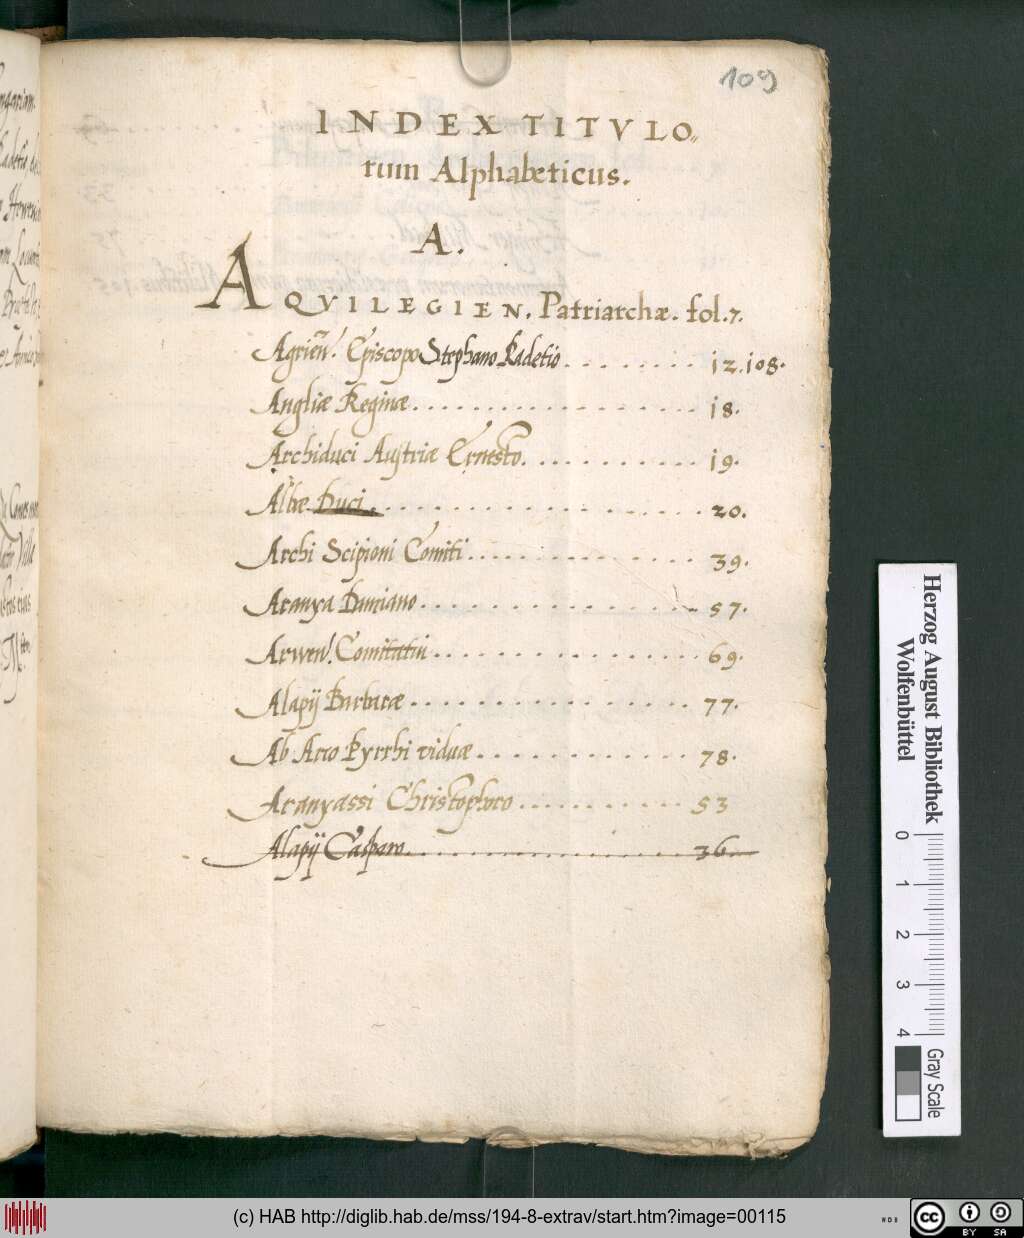 109
INDEX TITVLO„
rum Alphabeticus.
A.
AQVILEGIEN. Patriarchæ. fol. 7.
Agrien̄. Episcopo Stephano Radetio . . . . . . . . 12. 108.
Angliæ Reginæ . . . . . . . . . . . . . . . . . 18.
Archiduci Austriæ Ernesto . . . . . . . . . . . 19.
Albæ Duci . . . . . . . . . . . . . . . . . . . 20.
Archi Scipioni Comiti . . . . . . . . . . . . . 39.
Aranya Damiano . . . . . . . . . . . . . . . . 57.
Arwen. Comitatui . . . . . . . . . . . . . . . 69.
Alapij Barbaræ . . . . . . . . . . . . . . . . 77.
Ab Arco Pyrrhi viduæ . . . . . . . . . . . . . 78.
Aranyassi Christophoro . . . . . . . . . . . . 53
Alapij Casparo . . . . . . . . . . . . . . . . 36.
Herzog August Bibliothek
Wolfenbüttel
0 1 2 3 4
Gray Scale
(c) HAB http://diglib.hab.de/mss/194-8-extrav/start.htm?image=00115
WDB
cc BY SA